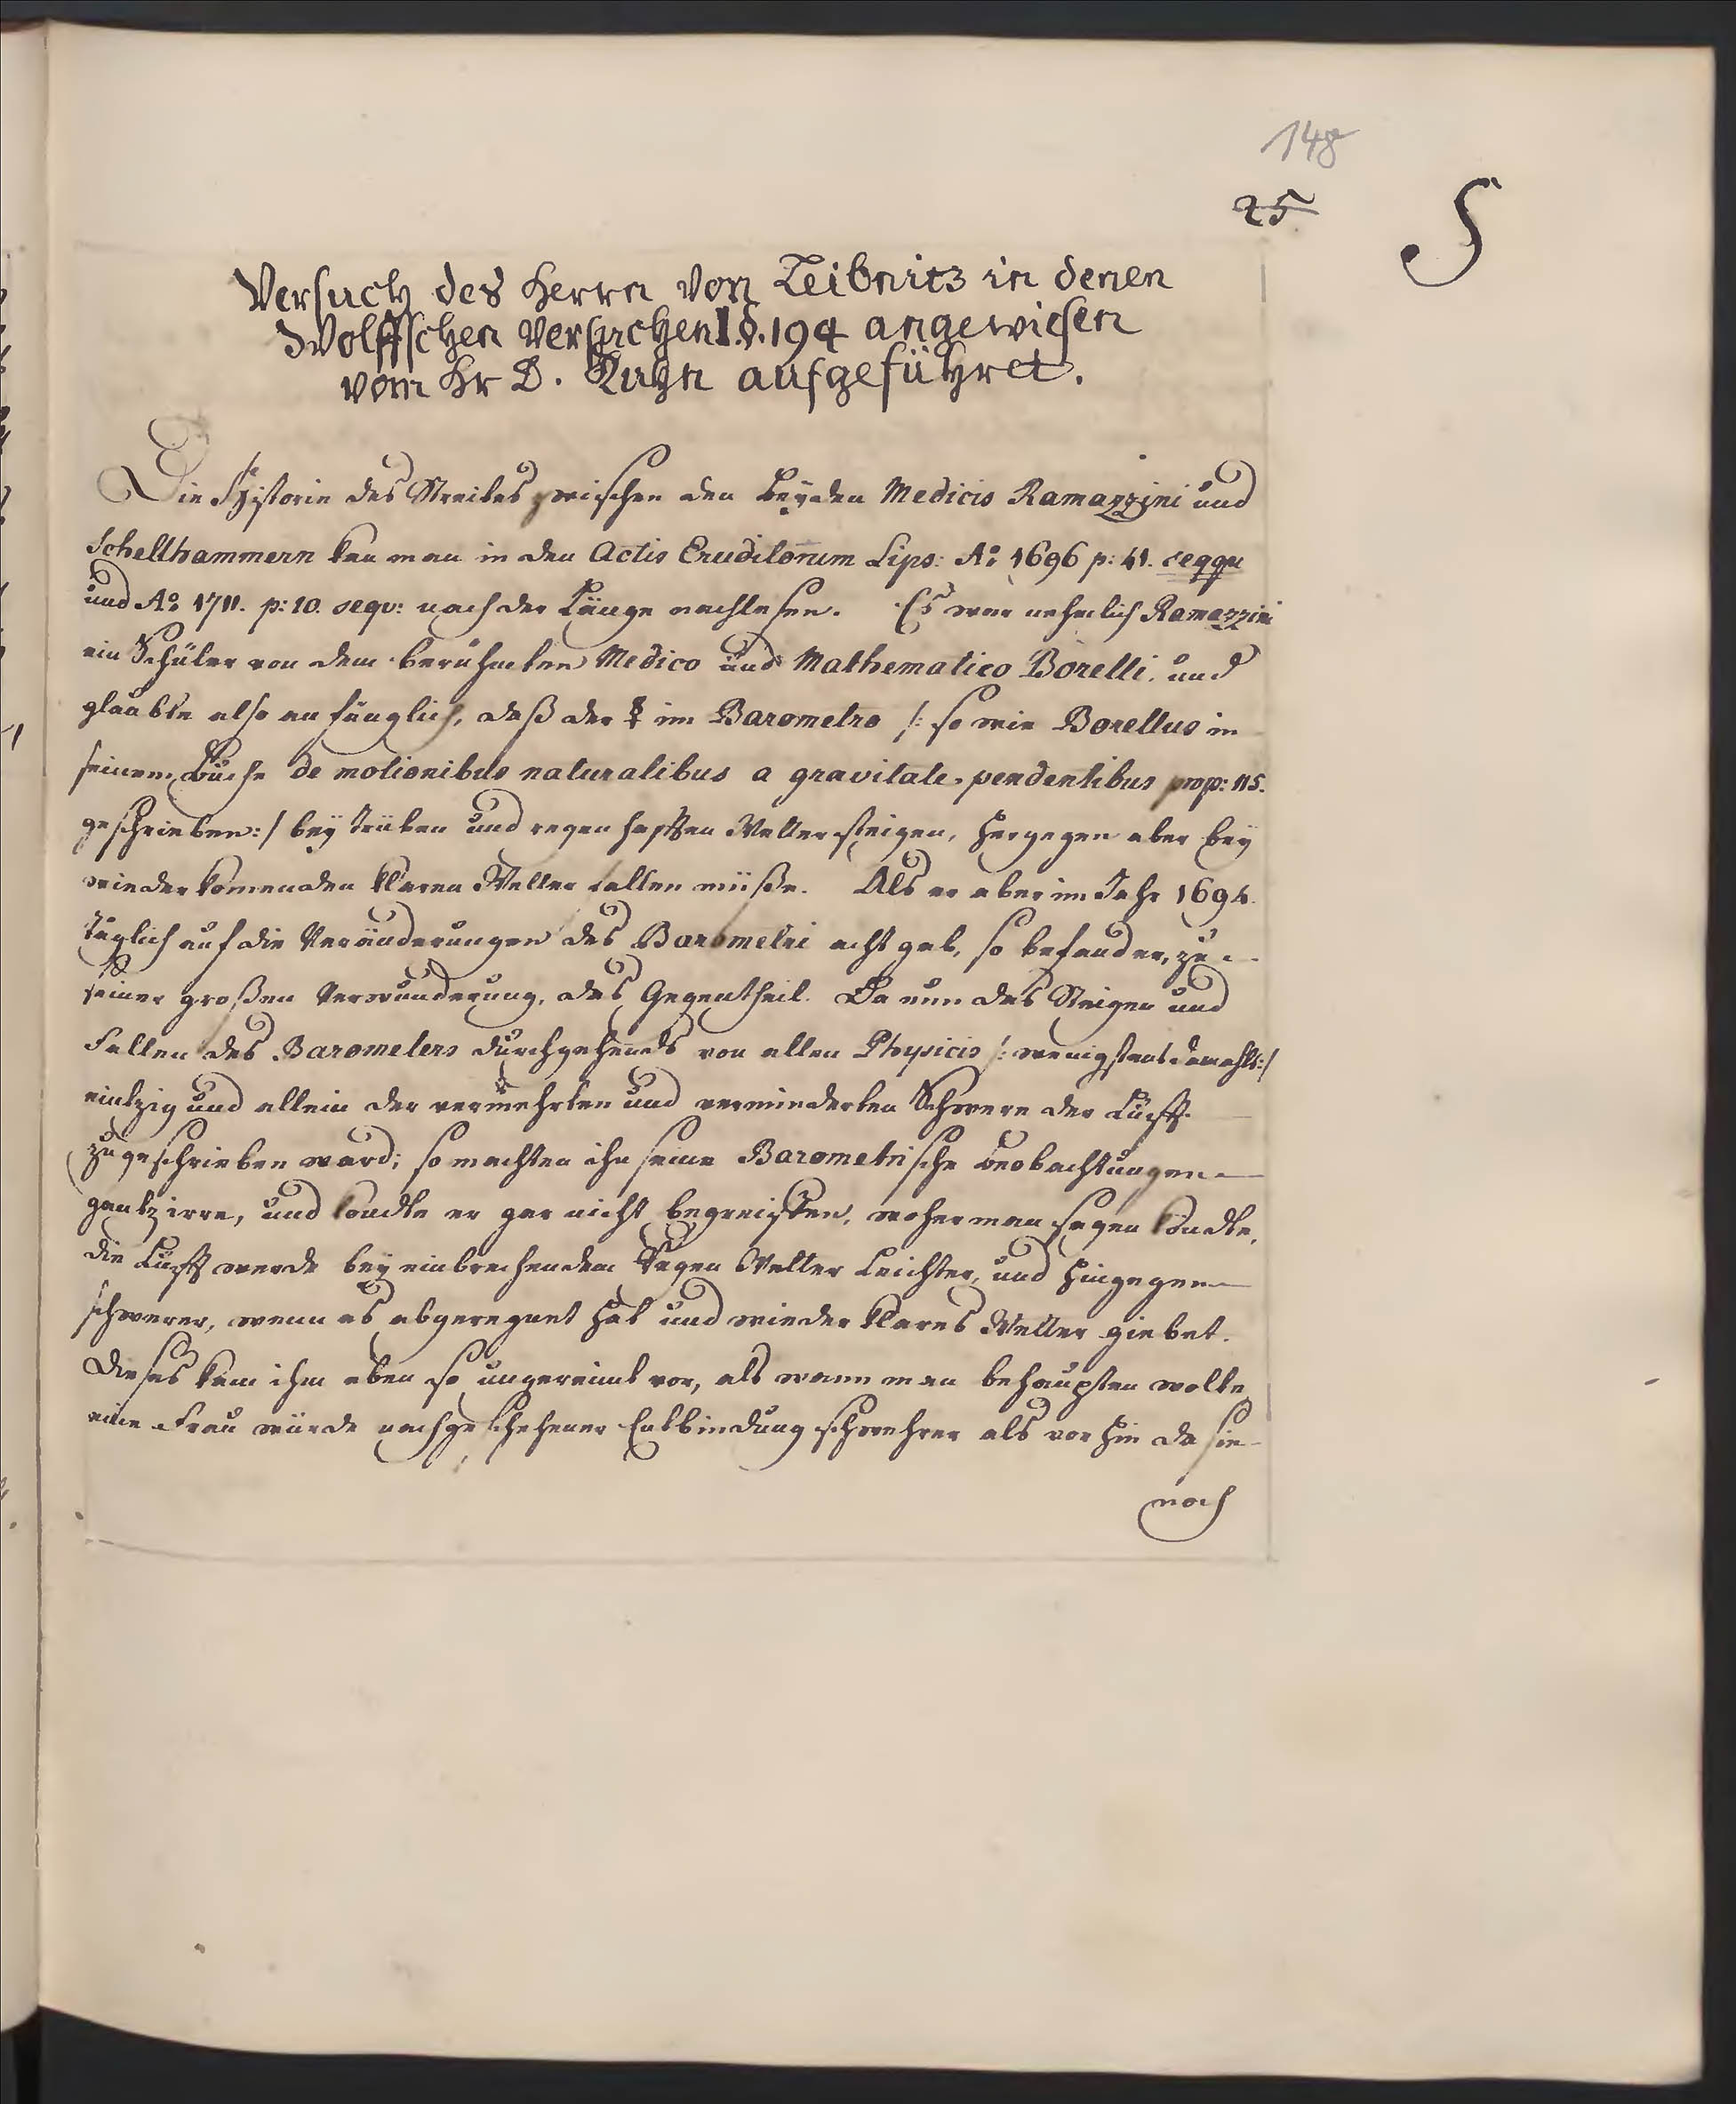 148
25
S
Versuch des Herrn von Leibnitz in denen
Wolffschen Versuchen I. §. 194 angewiesen
vom Hr D. Kuhn aufgeführet.
Die Historie des Streites zwischen den beyden Medicis Ramazzini und
Schellhammern kan man in den Actis Eruditorum Lips: Ao 1696 p: 41. seqqu
und Ao 1711. p: 10. seqv: nach der Länge nachlesen. Es war nehmlich Ramazzini
ein Schüler von dem berühmten Medico und Mathematico Borelli, und
glaubte also anfänglich, daß der ☿ im Barometro /: so wie Borellus in
seinem Buche de motionibus naturalibus a gravitate pendentibus prop: 115.
geschrieben :/ bey trüben und regenhafften Wetter steigen, hergegen aber bey
wiederkomenden klaren Wetter fallen müße. Als er aber im Jahr 1694.
täglich auf die Veränderungen des Barometri acht gab, so befand er, zu
seiner großen Verwunderung, das Gegentheil. Da nun das Steigen und
Fallen des Barometers durchgehends von allen Physicis /: wenigstens damahls :/
eintzig und allein der vermehrten und verminderten Schwere der Lufft
zugeschrieben ward; so machten ihn seine Barometrische Beobachtungen
gantz irre, und kondte er gar nicht begreiffen, woher man sagen köndte,
die Lufft werde bey einbrechendem Regen Wetter leichter, und hingegen
schwerer, wenn es abgeregnet hat und wieder klares Wetter giebet.
Dieses kam ihm eben so ungereimt vor, als wann man behaupten wolte
eine Frau würde nach geschehener Entbindung schwehrer als vorhin da sie
noch